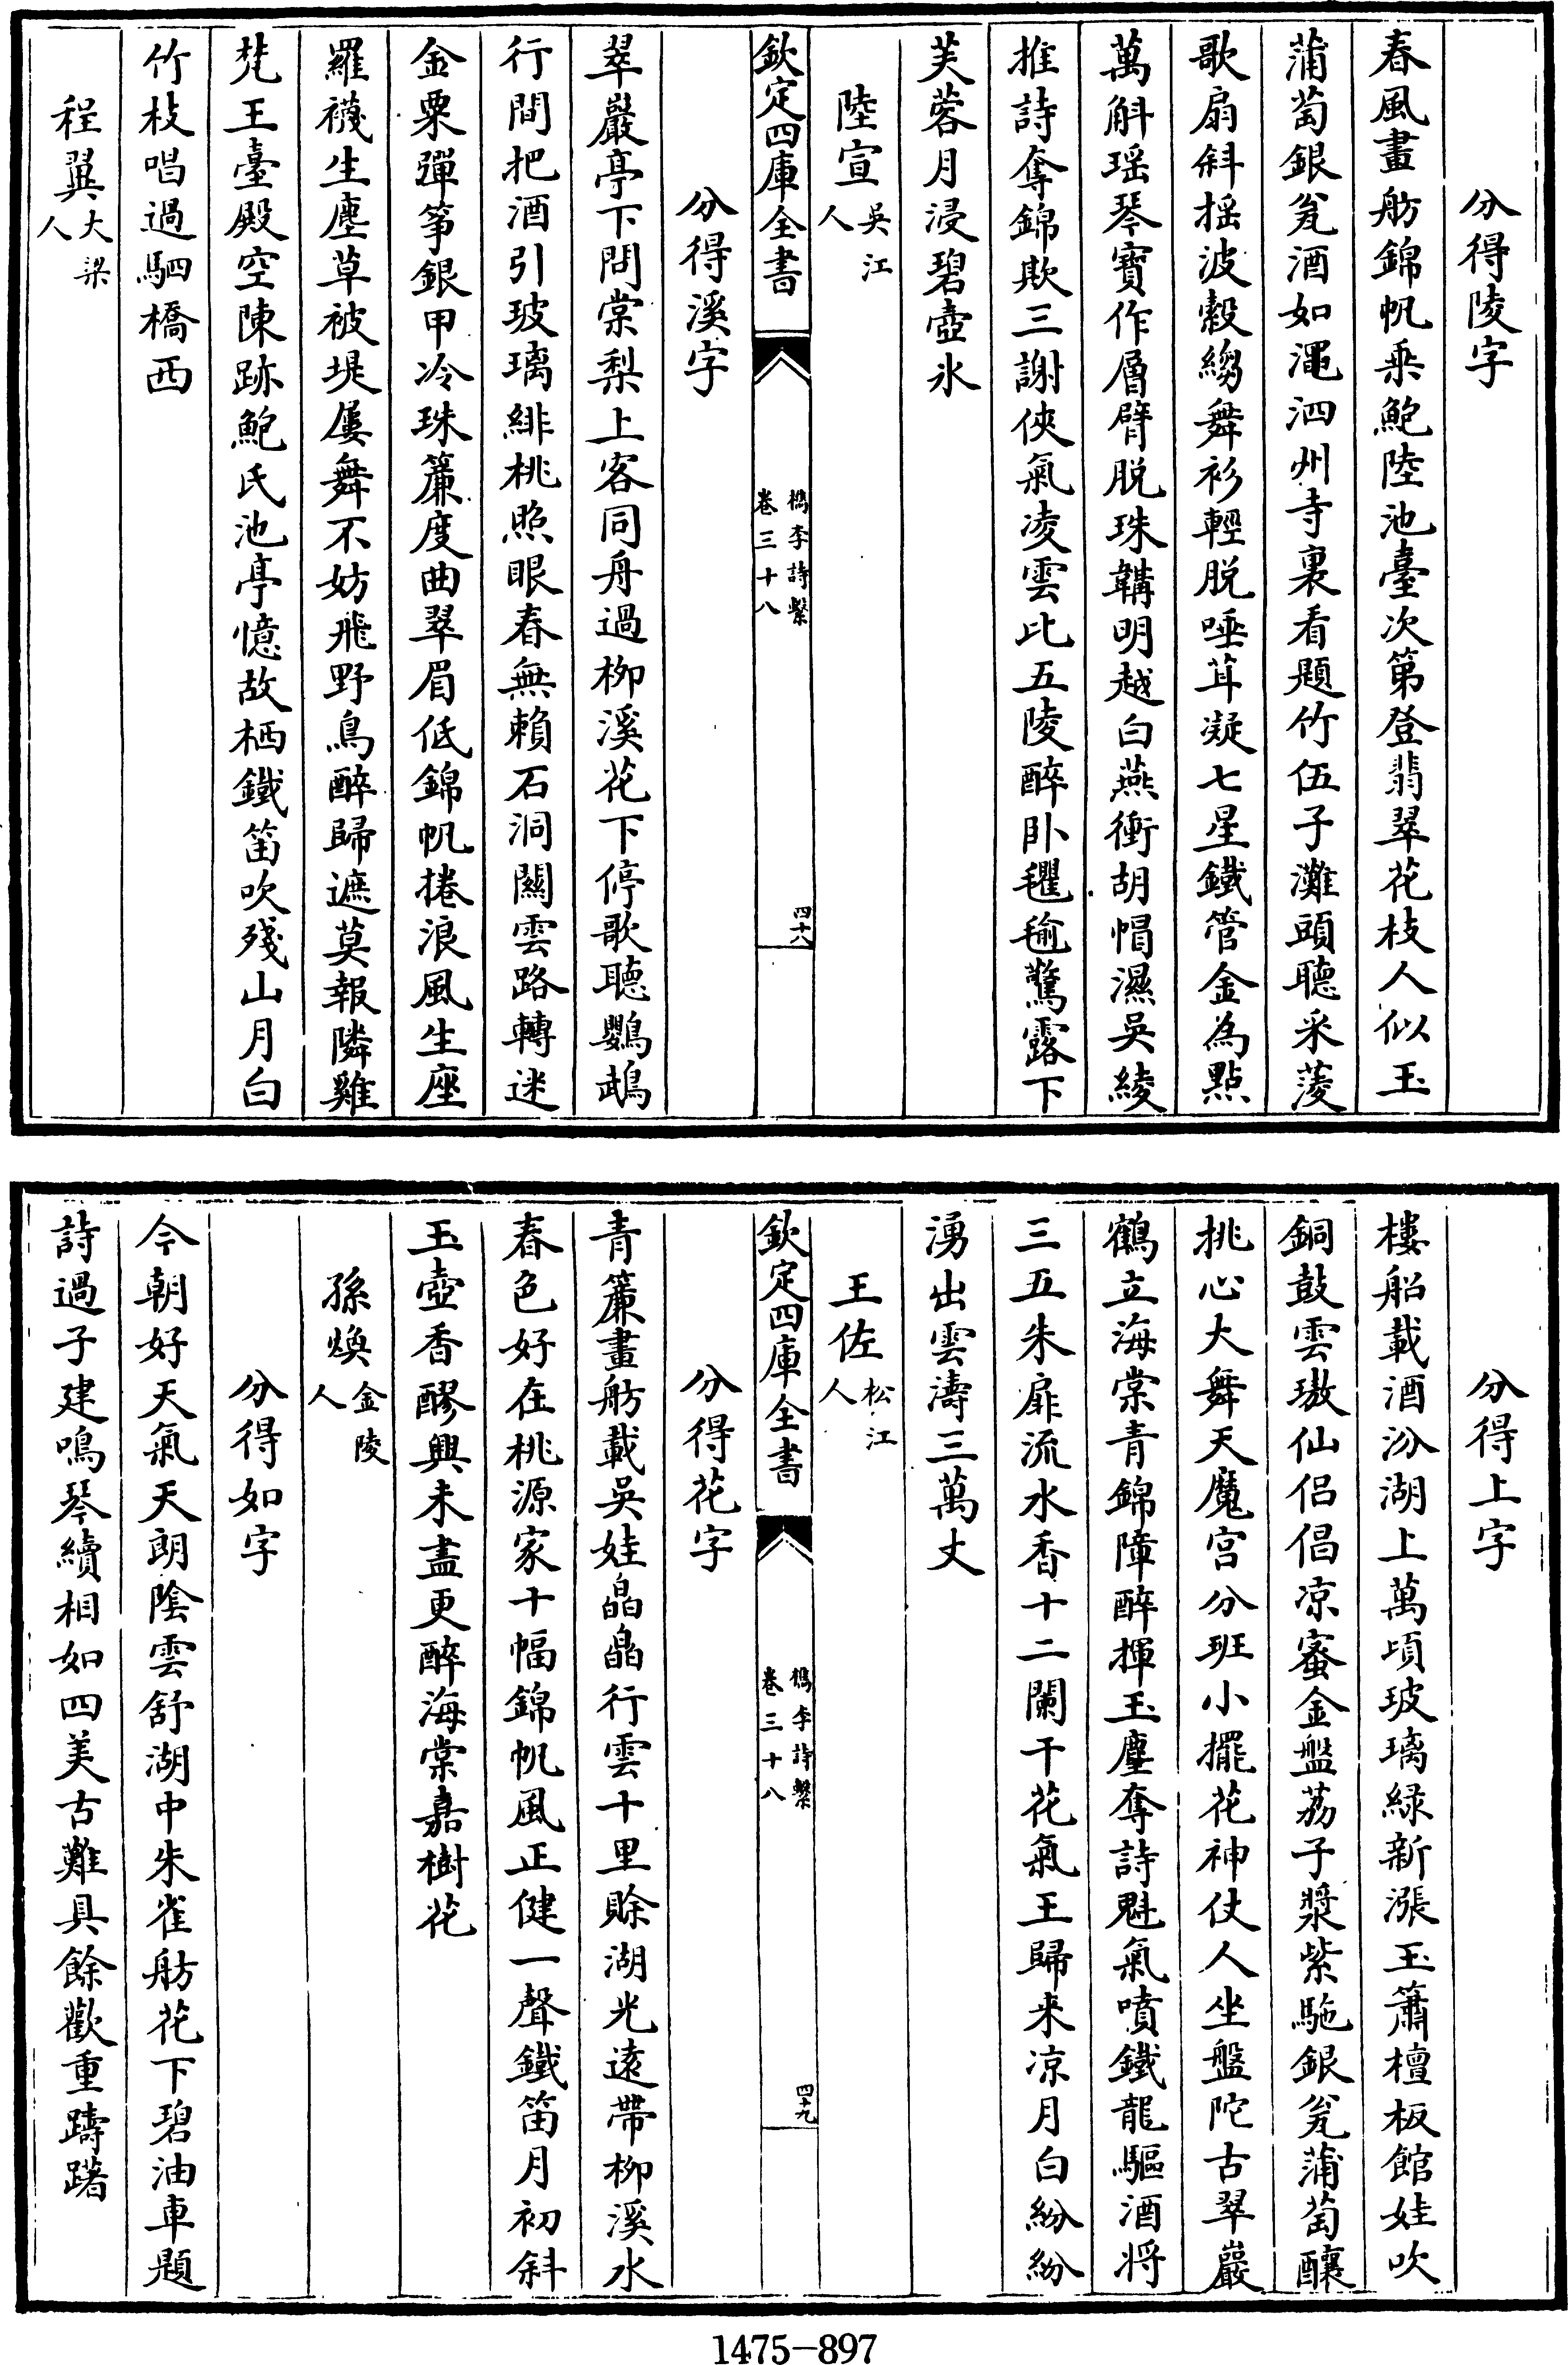 分得陵字
春風畫舫錦帆乘鮑陸池臺次第登翡翠花枝人似玉
蒲萄銀瓮酒如澠泗州寺裏看題竹伍子灘頭聽采菱
歌扇斜揺波縠縐舞衫輕脱唾茸凝七星鐵管金為點
萬斛瑶琴寶作層臂脱珠韝明越白燕衝胡帽濕吳綾
推詩奪錦欺三謝俠氣凌雲比五陵醉卧氍毹驚露下
芙蓉月浸碧壺氷
陸宣吳江人
欽定四庫全書
檇李詩繫
卷三十八
四十八
分得溪字
翠巖亭下問棠梨上客同舟過柳溪花下停歌聽鸚鵡
行間把酒引玻璃緋桃照眼春無賴石洞闗雲路轉迷
金粟彈筝銀甲冷珠簾度曲翠眉低錦帆捲浪風生座
羅襪生塵草被堤屢舞不妨飛野鳥醉歸遮莫報隣雞
梵王臺殿空陳跡鮑氏池亭憶故栖鐵笛吹殘山月白
竹枝唱過駟橋西
程翼大梁人
分得上字
樓船載酒汾湖上萬頃玻璃緑新漲玉簫檀板館娃吹
銅鼓雲璈仙侣倡凉蜜金盤荔子漿紫駞銀瓮蒲萄釀
挑心大舞天魔宫分班小擺花神仗人坐盤陀古翠巖
鶴立海棠青錦障醉揮玉麈奪詩魁氣噴鐵龍驅酒將
三五朱扉流水香十二闌干花氣王歸来凉月白紛紛
湧出雲濤三萬丈
王佐松江人
欽定四庫全書
檇李詩繫
卷三十八
四十九
分得花字
青簾畫舫載吳娃皛皛行雲十里賒湖光遠帶柳溪水
春色好在桃源家十幅錦帆風正健一聲鐵笛月初斜
玉壺香醪興未盡更醉海棠嘉樹花
孫煥金陵人
分得如字
今朝好天氣天朗陰雲舒湖中朱雀舫花下碧油車題
詩過子建鳴琴續相如四美古難具餘歡重躊躇
1475-897